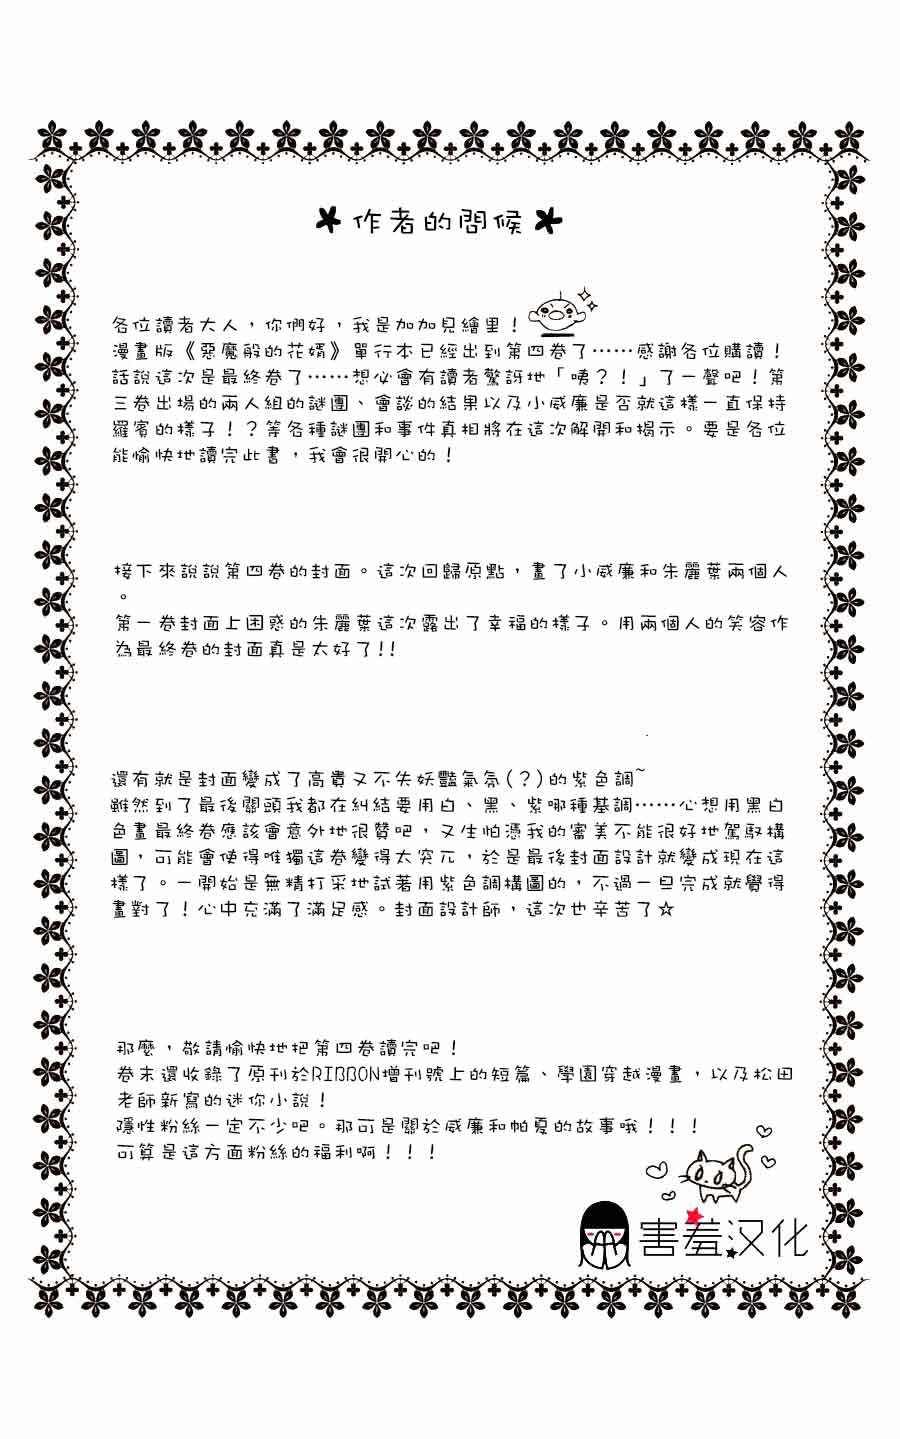 作者的問候
各位讀者大人，你們好，我是加加見繪里！
漫畫版《惡魔般的花婿》單行本已經出到第四卷了……感謝各位購讀！
話說這次是最終卷了……想必會有讀者驚訝地「咦？！」了一聲吧！第
三卷出場的兩人組的謎團、會談的結果以及小威廉是否就這樣一直保持
羅賓的樣子！？等各種謎團和事件真相將在這次解開和揭示。要是各位
能愉快地讀完此書，我會很開心的！
接下來說說第四卷的封面。這次回歸原點，畫了小威廉和朱麗葉兩個人
。
第一卷封面上困惑的朱麗葉這次露出了幸福的樣子。用兩個人的笑容作
為最終卷的封面真是太好了!!
還有就是封面變成了高貴又不失妖豔氣氛(？)的紫色調~
雖然到了最後關頭我都在糾結要用白、黑、紫哪種基調……心想用黑白
色畫最終卷應該會意外地很贊吧，又生怕憑我的審美不能很好地駕馭構
圖，可能會使得唯獨這卷變得太突兀，於是最後封面設計就變成現在這
樣了。一開始是無精打采地試著用紫色調構圖的，不過一旦完成就覺得
畫對了！心中充滿了滿足感。封面設計師，這次也辛苦了☆
那麼，敬請愉快地把第四卷讀完吧！
卷末還收錄了原刊於RIBBON增刊號上的短篇、學園穿越漫畫，以及松田
老師新寫的迷你小說！
隱性粉絲一定不少吧。那可是關於威廉和帕夏的故事哦！！！
可算是這方面粉絲的福利啊！！！
害羞汉化